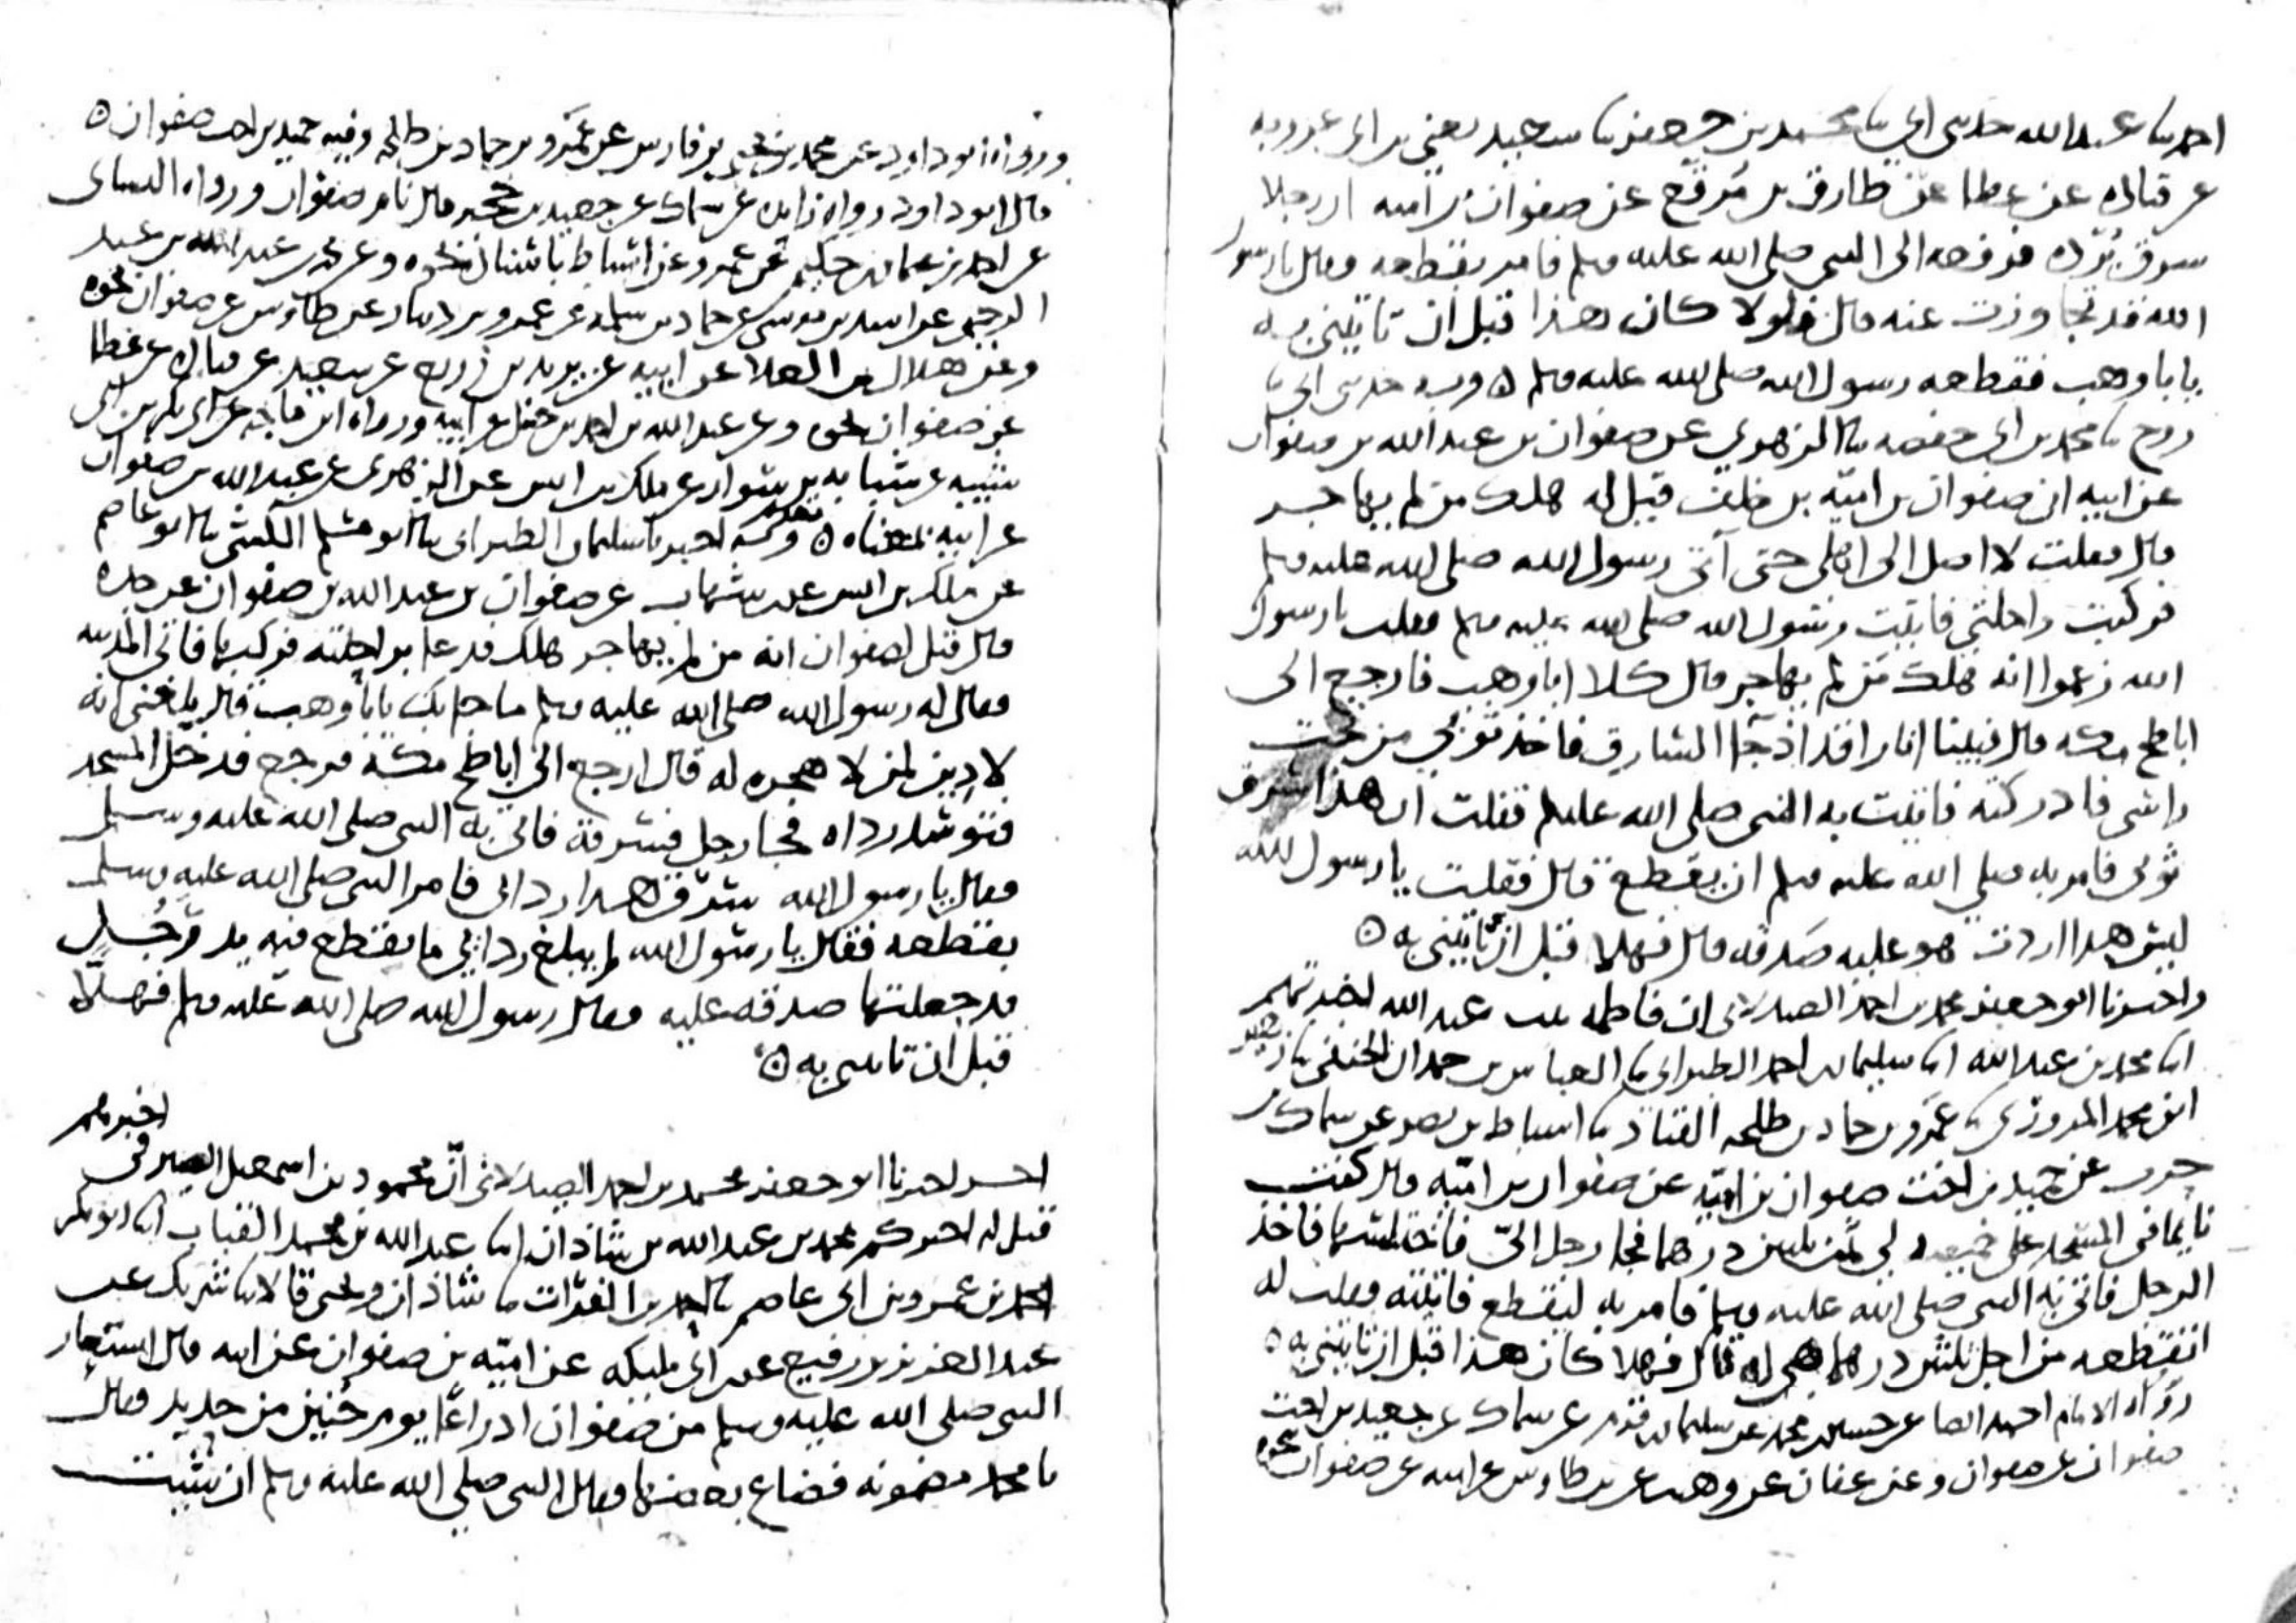 احمد نا عبد الله حدثني ابي نا محمد بن جعفر نا سعيد يعني بن ابي عروبه
عن قتاده عن عطا عن طارق بن مرقع عن صفوان بن اميه ان رجلا
سرق برده فرفعه الى النبي صلى الله عليه وسلم فامر بقطعه فقال يا رسول
الله قد تجاوزت عنه قال فلولا كان هذا قبل ان تاتيني به
يا با وهب فقطعه رسول الله صلى الله عليه وسلم ٥ وبه حدثني ابي نا
روح نا محمد بن ابي حفصه نا الزهري عن صفوان بن عبد الله بن صفوان
عن ابيه ان صفوان بن اميه بن خلف قيل له هلك من لم يهاجر
قال فقلت لا اصل الى اهلي حتى آتي رسول الله صلى الله عليه وسلم
فركبت راحلتي فاتيت رسول الله صلى الله عليه وسلم فقلت يا رسول
الله زعموا انه هلك من لم يهاجر قال كلا ابا وهب فارجع الى
اباطح مكه قال فبينا انا راقد اذ جا السارق فاخذ ثوبي من تحت
راسي فادركته فاتيت به النبي صلى الله عليه وسلم فقلت ان هذا سرق
ثوبي فامر به صلى الله عليه وسلم ان يقطع قال فقلت يا رسول الله
ليس هذا اردت هو عليه صدقه قال فهلا قبل ان تاتيني به ٥
واخبرنا ابو جعفر محمد بن احمد الصيدلاني ان فاطمه بنت عبد الله اخبرتهم
انا محمد بن عبد الله انا سليمان بن احمد الطبراني نا العباس بن حمدان الحنفي نا زهير
ابن محمد المروزي نا عمرو بن حماد بن طلحه القناد نا اسباط بن نصر عن سماك بن
حرب عن حميد بن اخت صفوان بن اميه عن صفوان بن اميه قال كنت
نايما في المسجد على خميصه لي ثمن ثلثين درهما فجا رجل الي فاختلسها فاخذ
الرجل فاتي به النبي صلى الله عليه وسلم فامر به ليقطع فاتيته فقلت له
اتقطعه من اجل ثلثين درهما هي له قال فهلا كان هذا قبل ان تاتيني به ٥
رواه الامام احمد ايضا عن حسين بن محمد عن سليمان بن قرم عن سماك عن جعيد بن اخت
صفوان عن صفوان وعن عفان عن وهيب عن بن طاوس عن ابيه عن صفوان نحوه
ورواه ابو داود عن محمد بن يحيى بن فارس عن عمرو بن حماد بن طلحه وفيه حميد بن اخت صفوان ٥
قال ابو داود رواه زايده عن سماك عن جعيد بن حجير قال نام صفوان ورواه النساي
عن احمد بن عثمان بن حكيم عن عمرو عن اسباط باسناده نحوه وعن محمد بن عبد الله بن عبد
الرحيم عن اسد بن موسى عن حماد بن سلمه عن عمرو بن دينار عن طاوس عن صفوان نحوه
وعن هلال بن العلا عن ابيه عن يزيد بن زريع عن سعيد عن قتاده عن عطا
عن صفوان نحوه وعن عبد الله بن احمد بن حنبل عن ابيه ورواه ابن ماجه عن ابي بكر بن ابي
شيبه عن شبابه بن سوار عن ملك بن انس عن الزهري عن عبد الله بن صفوان
عن ابيه بمعناه ٥ وبه اخبرنا سليمان الطبراني نا ابو مسلم الكشي نا ابو عاصم
عن ملك بن انس عن بن شهاب عن صفوان بن عبد الله بن صفوان عن جده
قال قيل لصفوان انه من لم يهاجر هلك فدعا براحلته فركبها فاتي المدينه
فقال له رسول الله صلى الله عليه وسلم ما جا بك يا با وهب قال بلغني انه
لا دين لمن لا هجره له قال ارجع الى اباطح مكه فرجع فدخل المسجد
فتوسد رداه فجا رجل فسرقه فاتي به النبي صلى الله عليه وسلم
فقال يا رسول الله سرق هذا ردائي فامر النبي صلى الله عليه وسلم
بقطعه فقال يا رسول الله لم يبلغ ردائي ما يقطع فيه يد رجل
قد جعلتها صدقه عليه فقال رسول الله صلى الله عليه وسلم فهلا
قبل ان تاتيني به ٥
اخبرناه
اخر اخبرنا ابو جعفر محمد بن احمد الصيدلاني ان محمود بن اسمعيل الصيرفي
قيل له اخبركم محمد بن عبد الله بن شاذان انا عبد الله بن محمد القباب انا ابو بكر
احمد بن عمرو بن ابي عاصم نا احمد بن الفرات نا شاذان ويحيى قالا نا شريك عن
عبد العزيز بن رفيع عن ابن ابي مليكه عن اميه بن صفوان عن ابيه قال استعار
النبي صلى الله عليه وسلم من صفوان ادراعا يوم حنين من حديد فقال
يا محمد مضمونه فضاع بعضها فقال النبي صلى الله عليه وسلم ان شيت